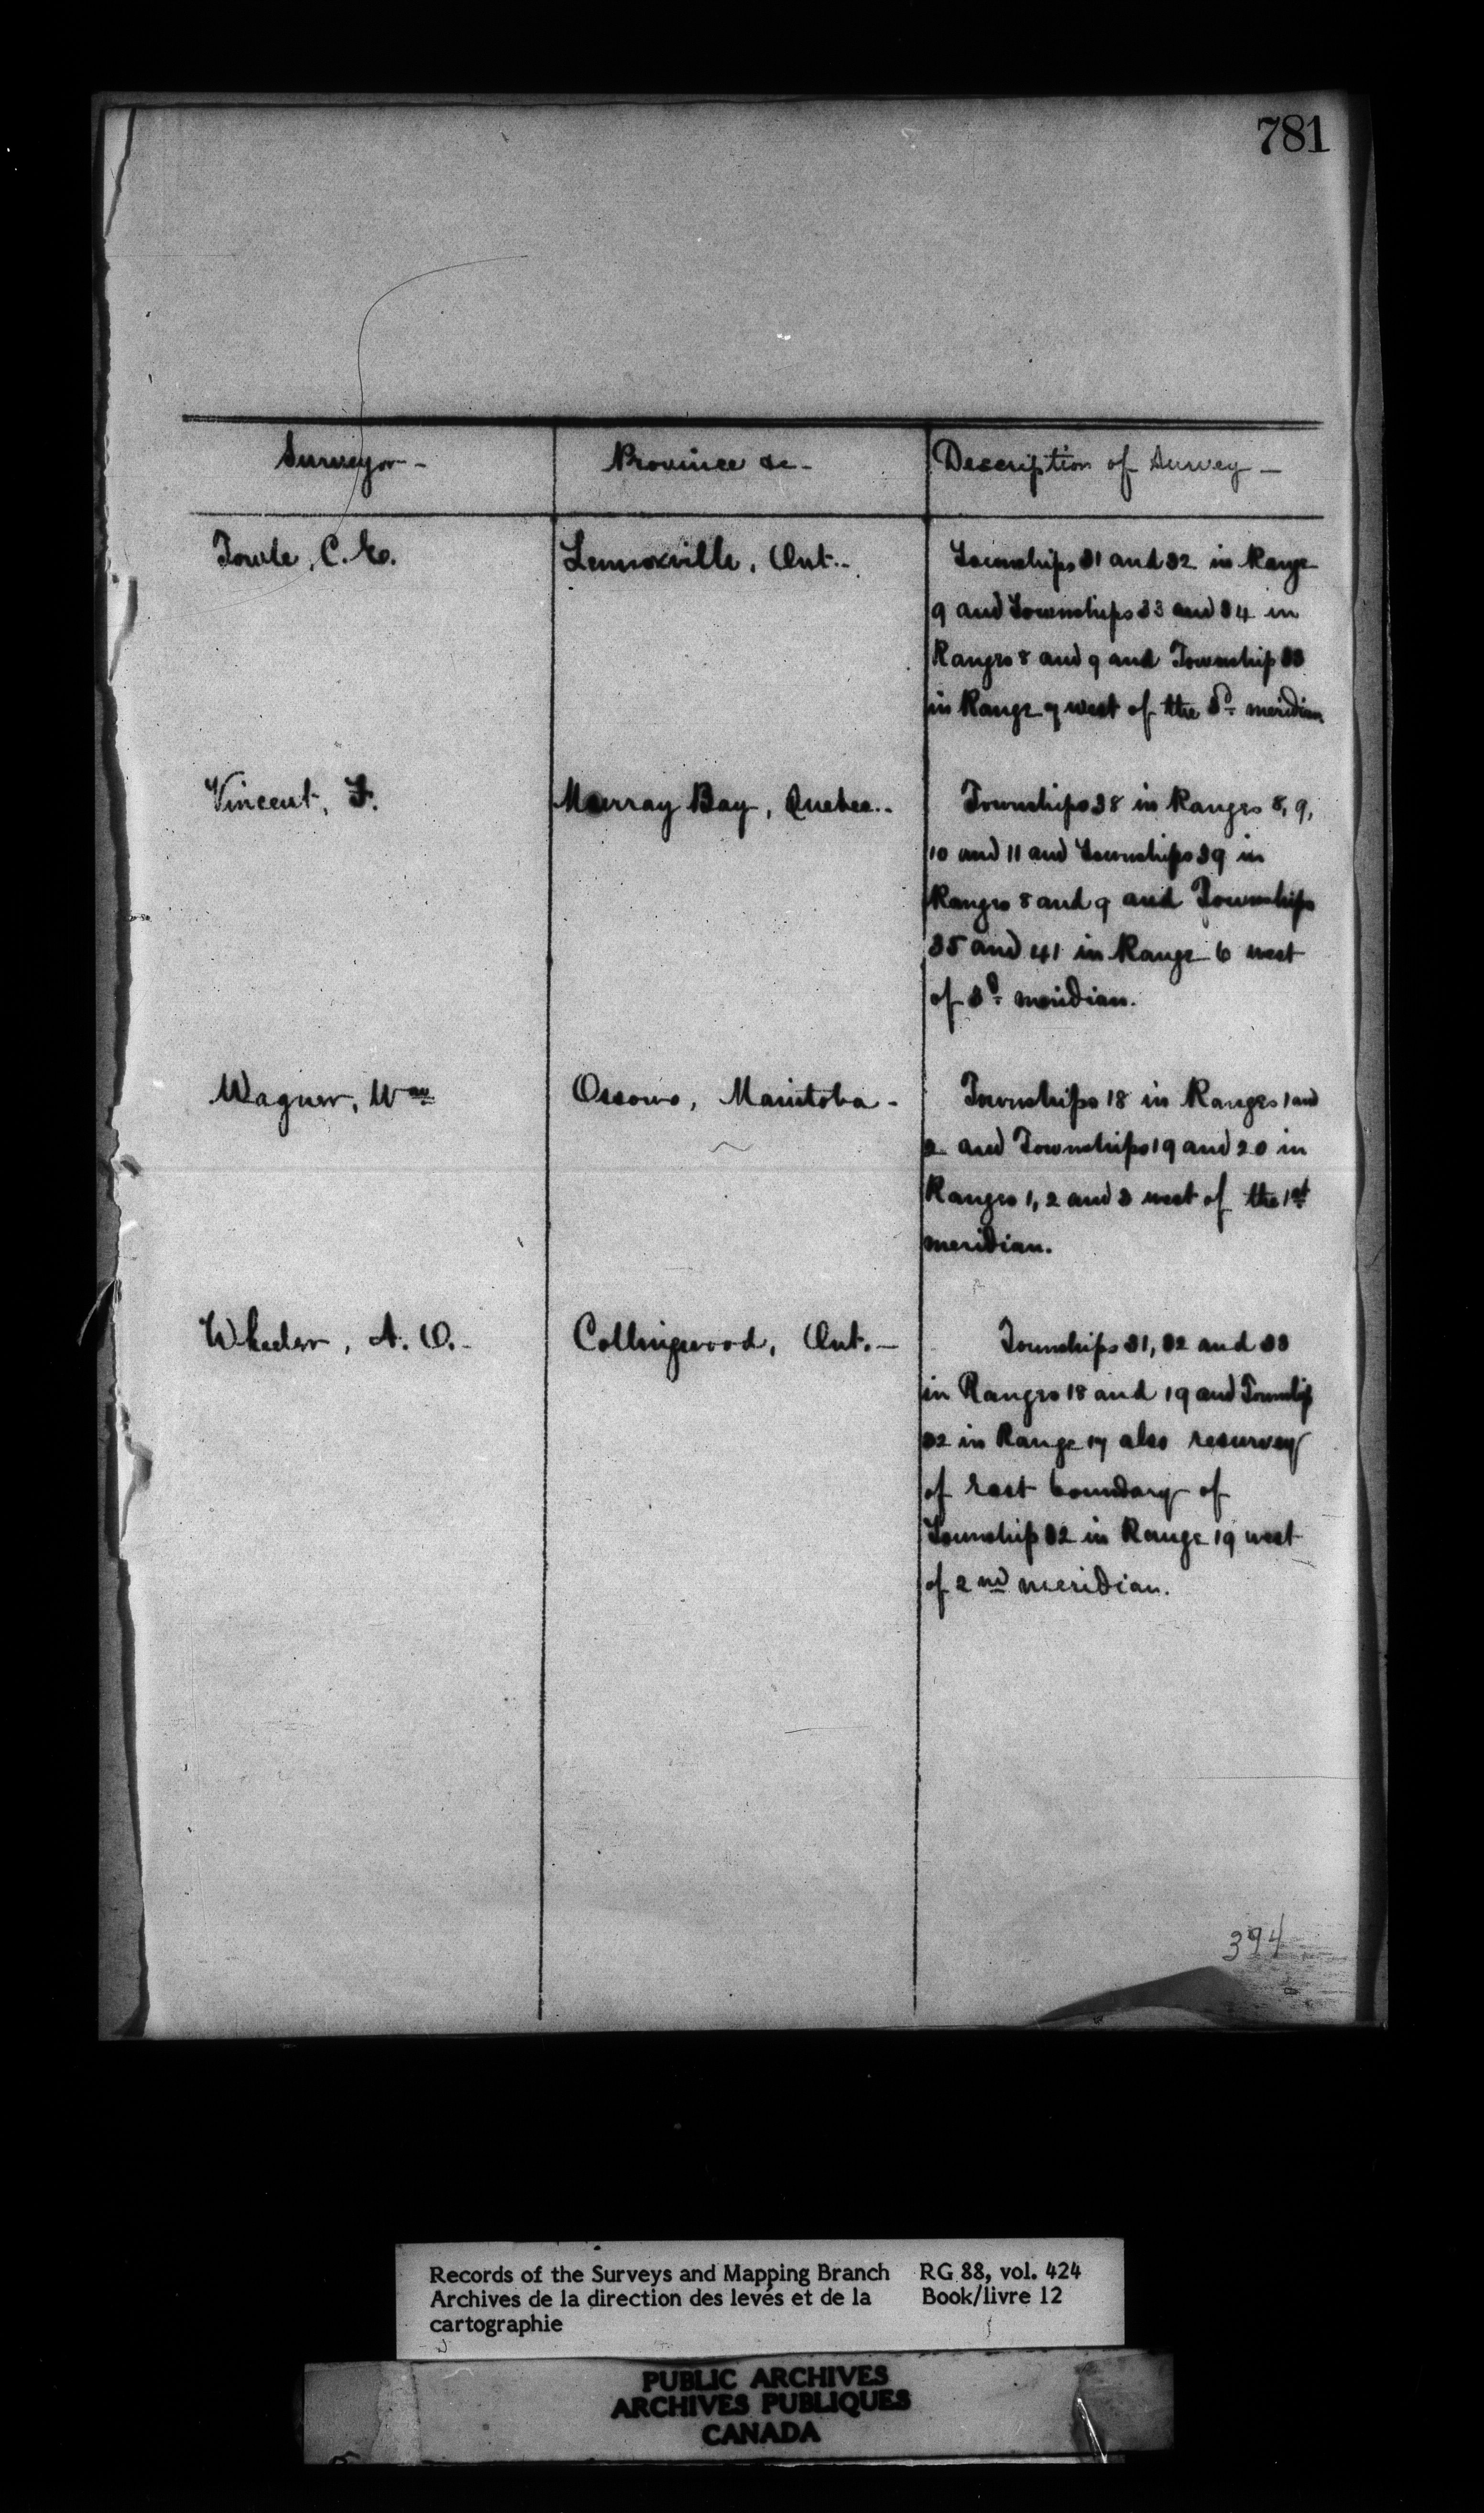 781
Surveyor - Province &c - Description of Survey -
Towle, C. E. Lennoxville, Ont. - Townships 31 and 32 in Range
9 and Townships 33 and 34 in
Ranges 8 and 9 and Township 33
in Range 7 west of the 3d meridian
Vincent, F. Murray Bay, Quebec. - Townships 38 in Ranges 8, 9,
10 and 11 and Townships 39 in
Ranges 8 and 9 and Townships
35 and 41 in Range 6 west
of 3d meridian.
Wagner, Wm Ossowo, Manitoba - Townships 18 in Ranges 1 and
2 and Townships 19 and 20 in
Ranges 1, 2 and 3 west of the 1st
meridian.
Wheeler, A. O. - Collingwood, Ont. - Townships 31, 32 and 33
in Ranges 18 and 19 and Township
32 in Range 17 also resurvey
of east boundary of
Township 32 in Range 19 west
of 2nd meridian.
394
Records of the Surveys and Mapping Branch RG 88, vol. 424
Archives de la direction des levés et de la Book/livre 12
cartographie
PUBLIC ARCHIVES
ARCHIVES PUBLIQUES
CANADA